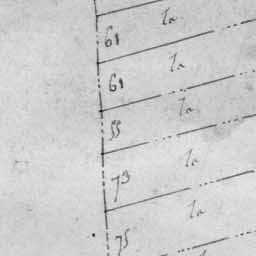 la
61
la
61
la
55
la
73
la
75